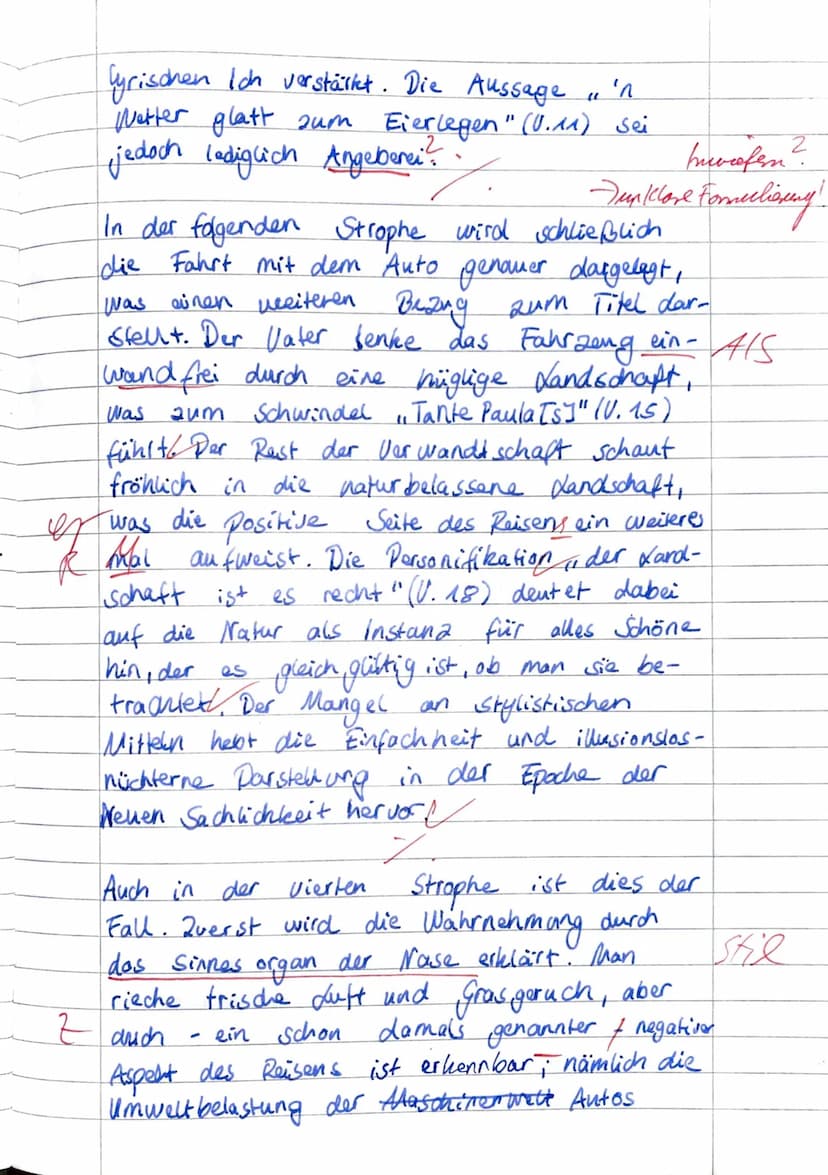 lyrischen Ich verstärkt. Die Aussage „'n
Wetter glatt zum Eierlegen" (V.11) sei
jedoch lediglich Angeberei?.
Inwiefern?
→ unklare Formulierung!
In der folgenden Strophe wird schließlich
die Fahrt mit dem Auto genauer dargelegt,
was einen weiteren Bezug zum Titel dar-
stellt. Der Vater lenke das Fahrzeug ein-
A/S
wandfrei durch eine hüglige Landschaft,
was zum Schwindel „Tante Paula[s]" (V. 15)
führt. Der Rest der Verwandtschaft schaut
fröhlich in die naturbelassene Landschaft,
was die positive Seite des Reisens ein weiteres
R
Mal aufweist. Die Personifikation „der Land-
schaft ist es recht" (V. 18) deutet dabei
auf die Natur als Instanz für alles Schöne
hin, der es gleichgültig ist, ob man sie be-
trachtet. Der Mangel an stylistischen
Mitteln hebt die Einfachheit und illusionslos-
nüchterne Darstellung in der Epoche der
Neuen Sachlichkeit hervor.
Auch in der vierten Strophe ist dies der
Fall. Zuerst wird die Wahrnehmung durch
das Sinnesorgan der Nase erklärt. Man
Stil
rieche frische Luft und Grasgeruch, aber
Z
auch - ein schon damals genannter negativer
Aspekt des Reisens ist erkennbar; nämlich die
Umweltbelastung der Maschinenwelt Autos